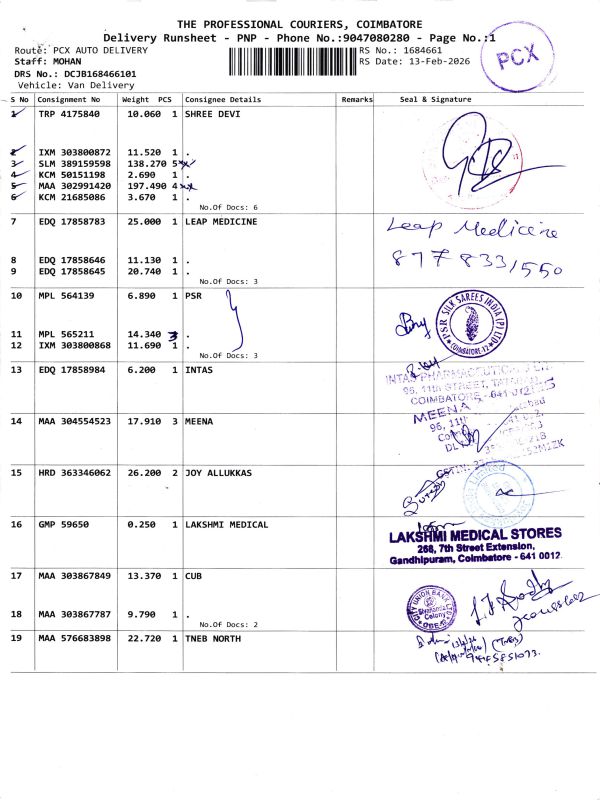 THE PROFESSIONAL COURIERS, COIMBATORE
Delivery Runsheet - PNP - Phone No.:9047080280 - Page No.:1
Route: PCX AUTO DELIVERY
RS No.: 1684661
PCX
Staff: MOHAN
RS Date: 13-Feb-2026
DRS No.: DCJB168466101
Vehicle: Van Delivery
S No Consignment No Weight PCS Consignee Details Remarks Seal & Signature
1 TRP 4175840 10.060 1 SHREE DEVI
2 IXM 303800872 11.520 1 .
3 SLM 389159598 138.270 5
4 KCM 50151198 2.690 1 .
5 MAA 302991420 197.490 4
6 KCM 21685086 3.670 1 .
No.Of Docs: 6
7 EDQ 17858783 25.000 1 LEAP MEDICINE
Leap Medicine
8 EDQ 17858646 11.130 1 .
877 8331550
9 EDQ 17858645 20.740 1 .
No.Of Docs: 3
10 MPL 564139 6.890 1 PSR
PSR SILK SAREES INDIA (P) LTD
COIMBATORE-12
11 MPL 565211 14.340 3 .
12 IXM 303800868 11.690 1 .
No.Of Docs: 3
13 EDQ 17858984 6.200 1 INTAS
INTAS PHARMACEUTICALS LTD
96, 11th STREET,
COIMBATORE - 641 012
14 MAA 304554523 17.910 3 MEENA
MEENA
96, 11th
15 HRD 363346062 26.200 2 JOY ALLUKKAS
16 GMP 59650 0.250 1 LAKSHMI MEDICAL
LAKSHMI MEDICAL STORES
268, 7th Street Extension,
Gandhipuram, Coimbatore - 641 0012.
17 MAA 303867849 13.370 1 CUB
CITY UNION BANK LTD
Colony
18 MAA 303867787 9.790 1 .
No.Of Docs: 2
19 MAA 576683898 22.720 1 TNEB NORTH